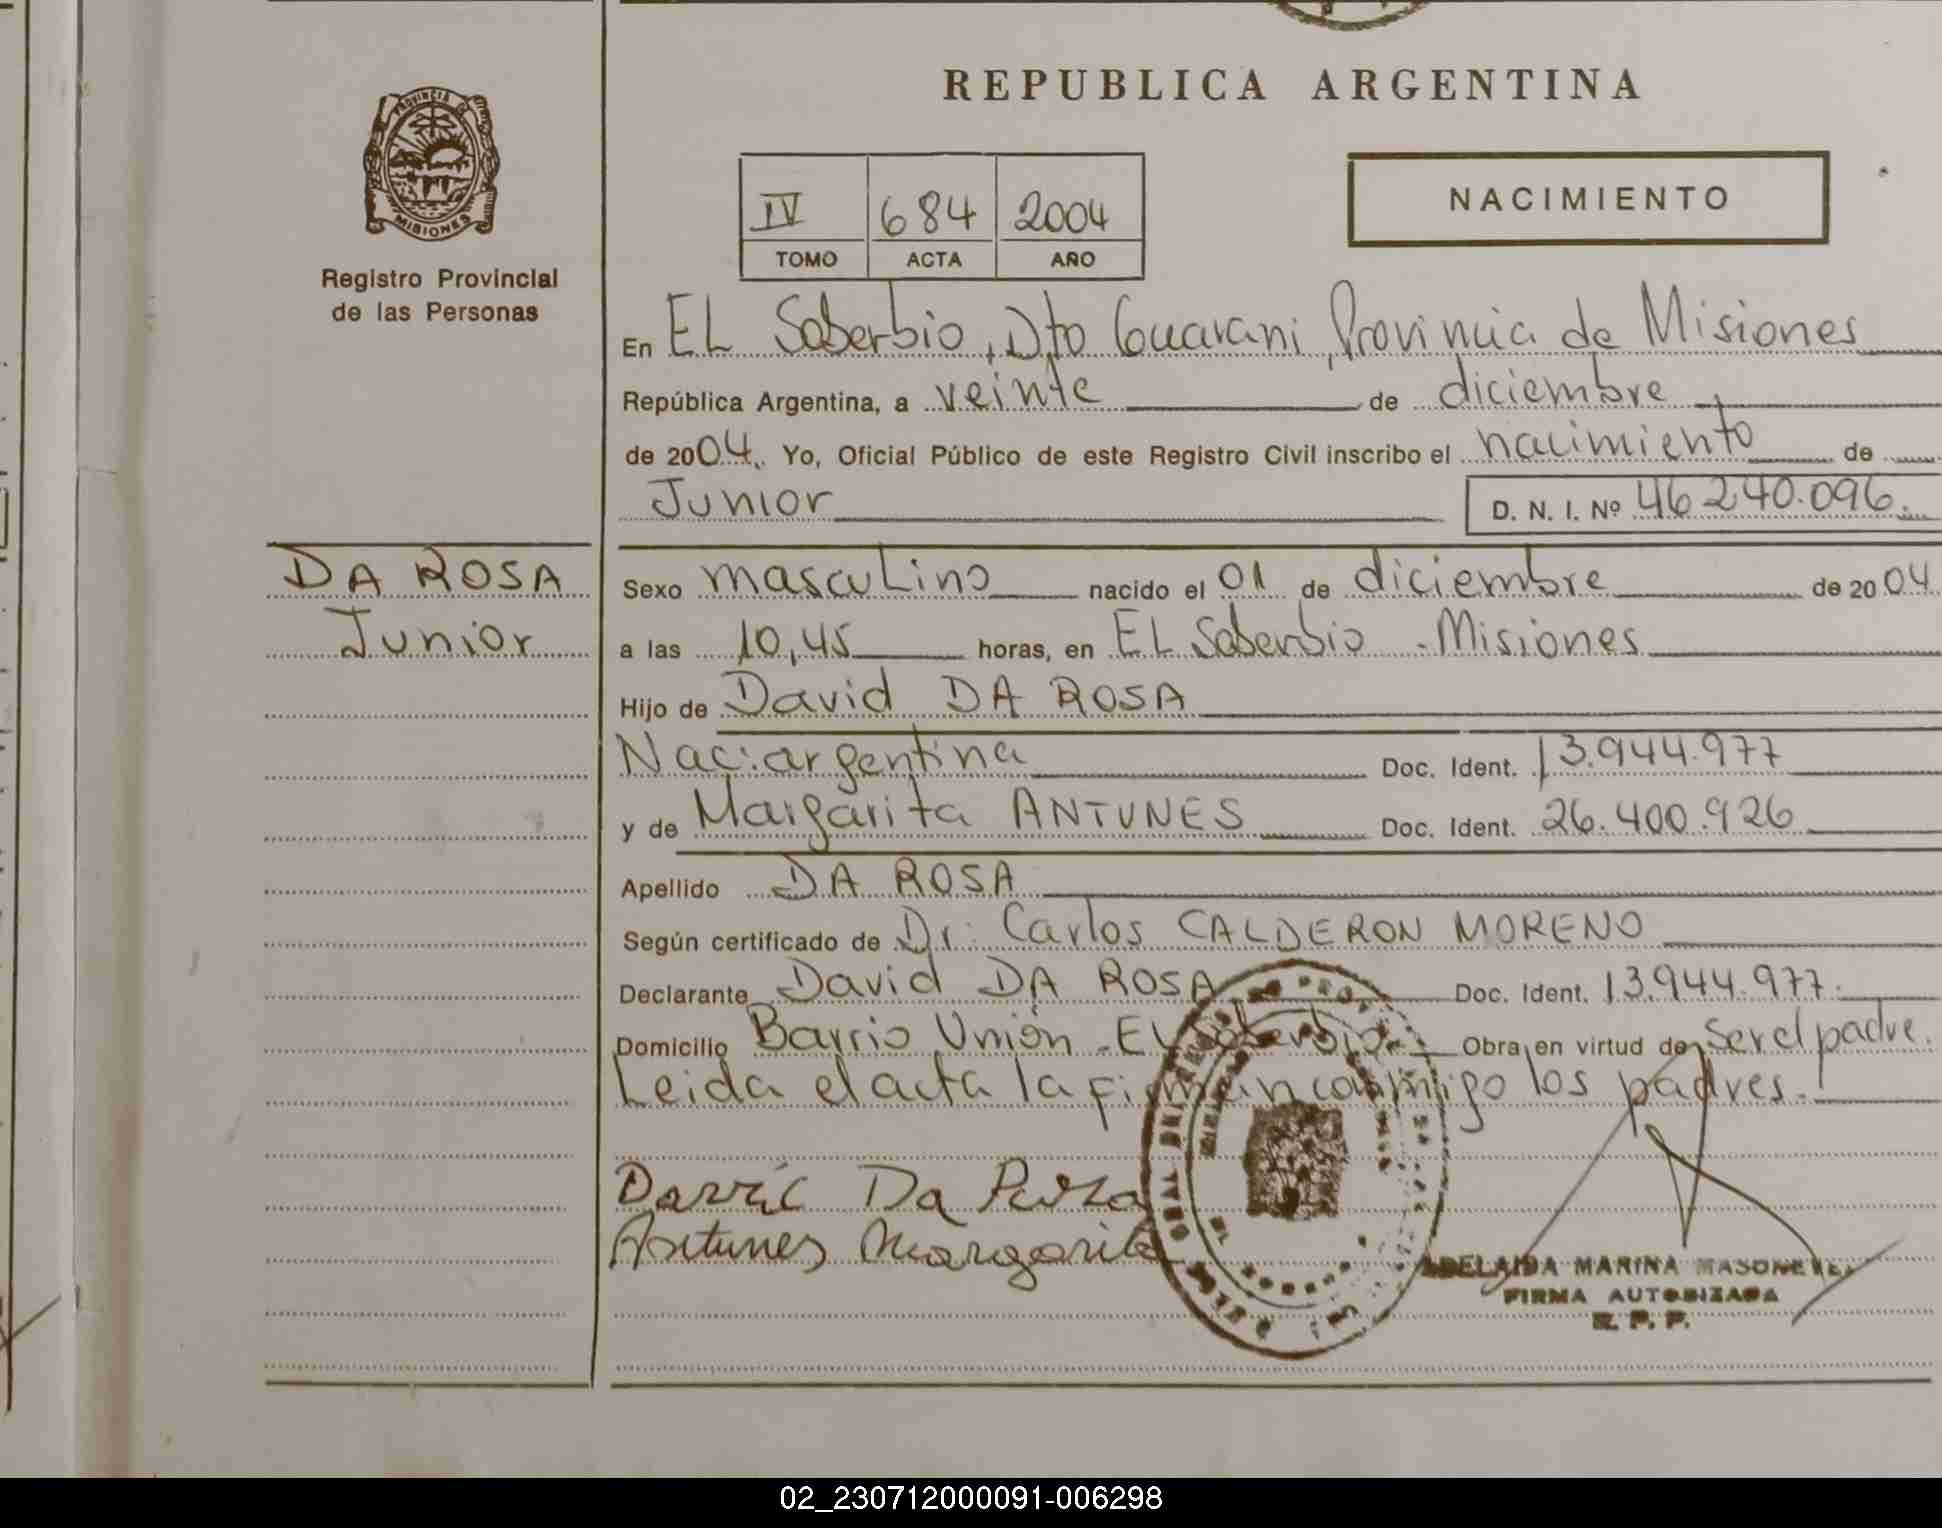 REPUBLICA ARGENTINA
PROVINCIA DE MISIONES
Registro Provincial
de las Personas
IV 684 2004
TOMO ACTA AÑO
NACIMIENTO
En EL Soberbio, Dto Guarani, Provincia de Misiones
República Argentina, a veinte de diciembre
de 2004. Yo, Oficial Público de este Registro Civil inscribo el nacimiento de
Junior D. N. I. Nº 46 240.096.
DA ROSA
Junior
Sexo mascuLino nacido el 01 de diciembre de 2004
a las 10,45 horas, en EL Soberbio - Misiones
Hijo de David DA ROSA
Nac: argentina Doc. Ident. 13.944.977
y de Margarita ANTUNES Doc. Ident. 26.400.926
Apellido DA ROSA
Según certificado de Dr. Carlos CALDERON MORENO
Declarante David DA ROSA Doc. Ident. 13.944.977.
Domicilio Barrio Unión - El Soberbio. Obra en virtud de ser el padre.
Leida el acta la firman conmigo los padres.
Da Rosa
Antunes Margarita
ADELAIDA MARINA
FIRMA AUTORIZADA
R. P. P.
02_230712000091-006298